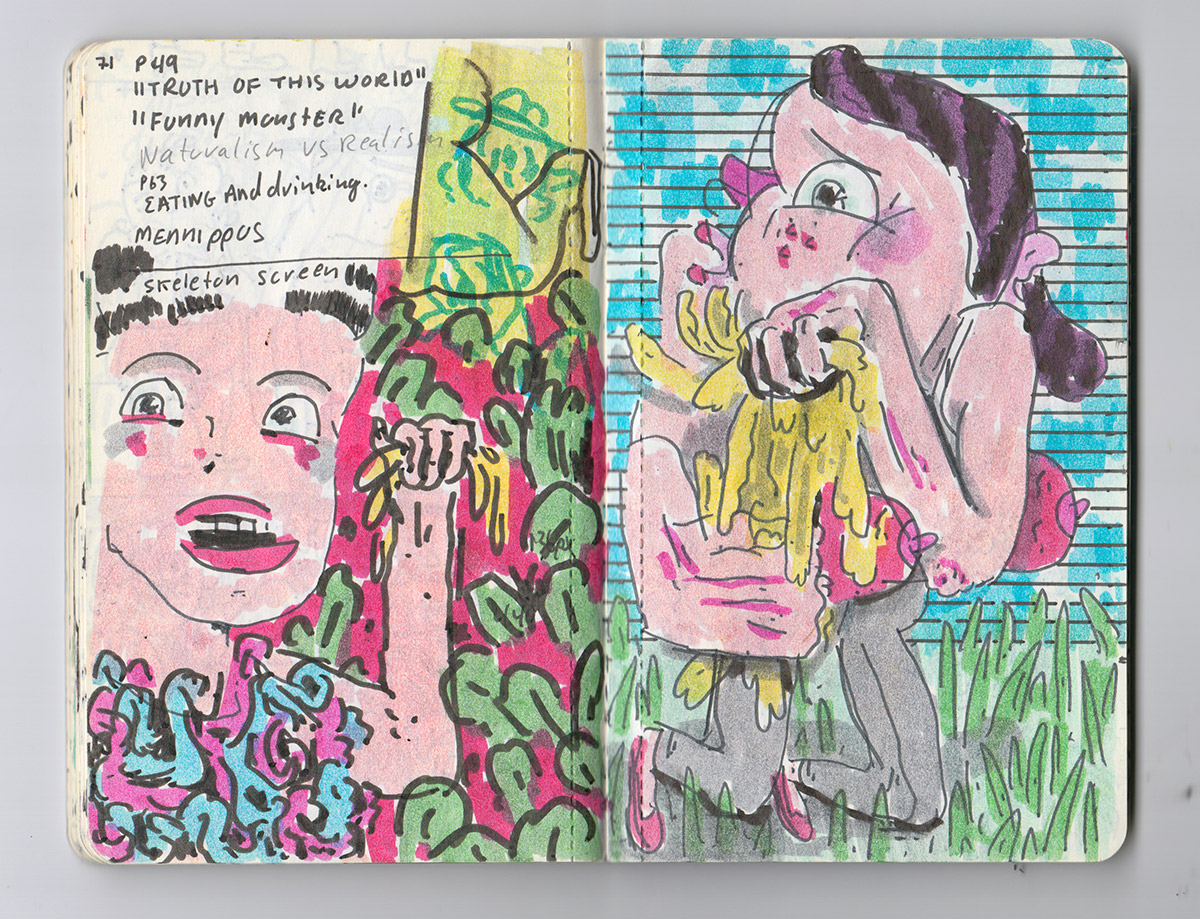 71 P49
"TRUTH OF THIS WORLD"
"Funny monster"
Naturalism vs Realism
P63
EATING And drinking.
MENNIPPUS
skeleton screen